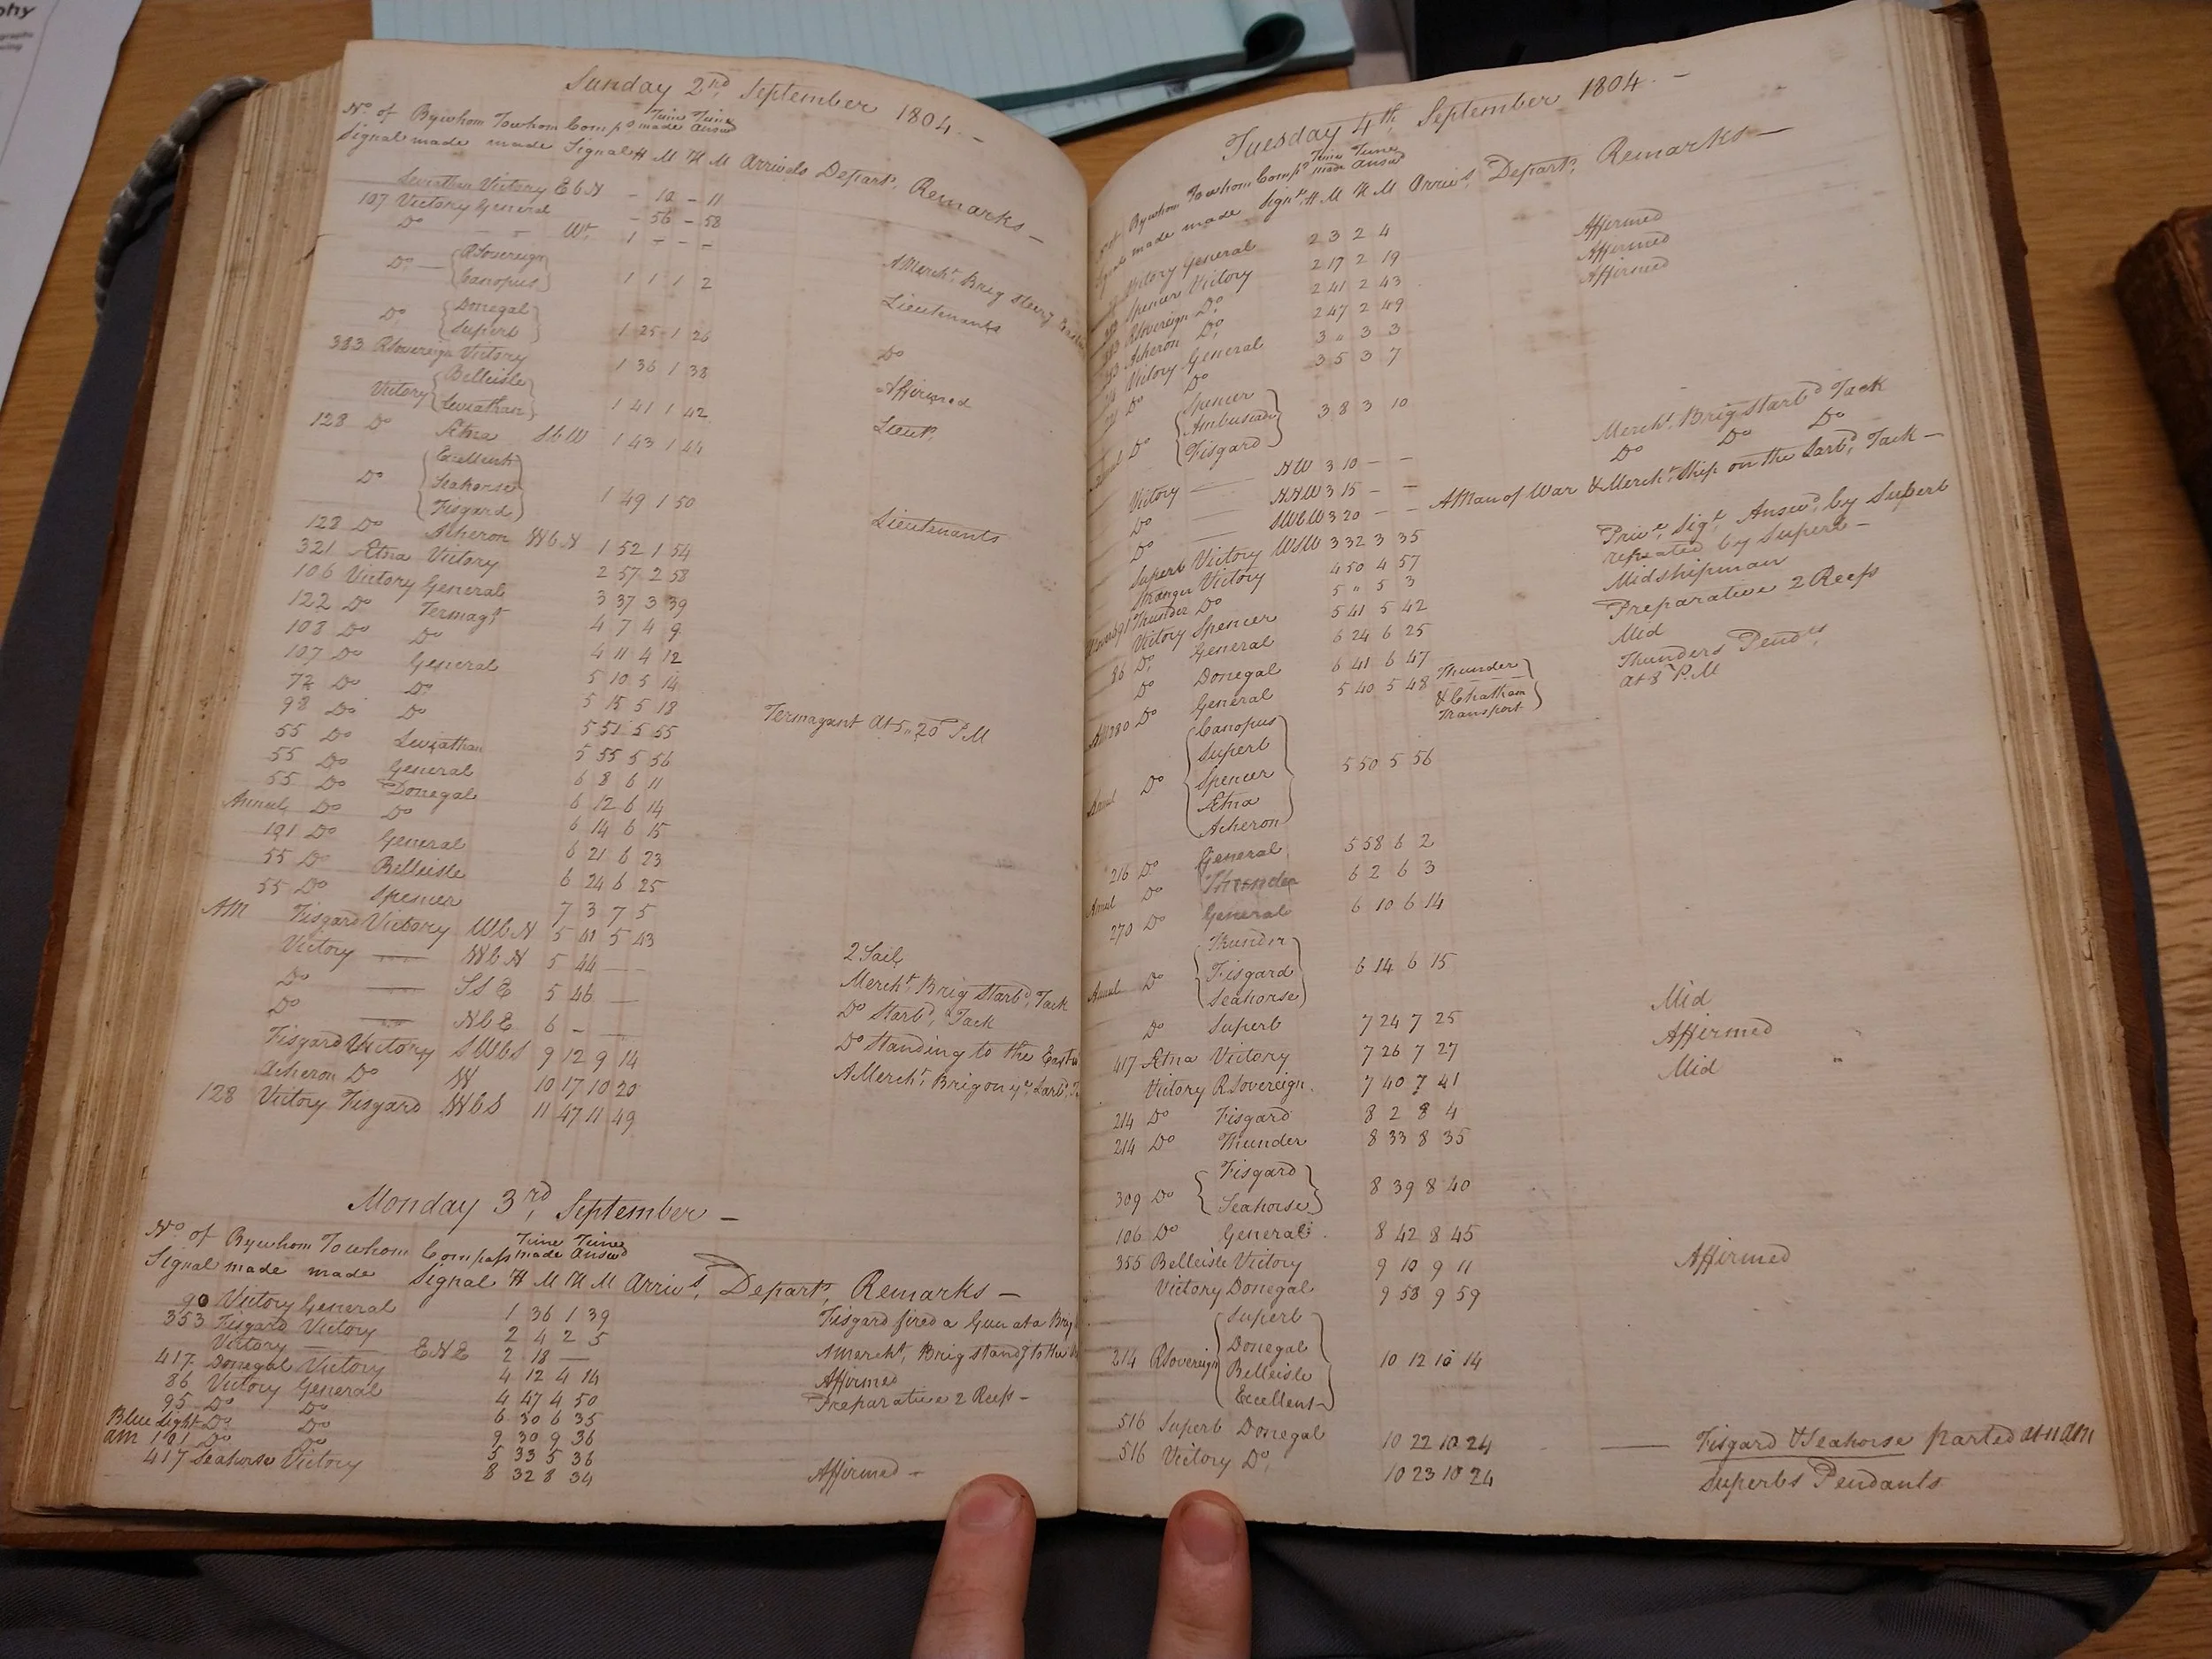 phy
Sunday 2nd, September 1804 -
No of By whom To whom Comps Time made Time Answd
Signal made made Signal H M H M Arrivals Depart, Remarks -
Leviathan Victory EbN - 10 - 11
107 Victory General - 56 - 58
Do - - Wt. 1 - - -
A Mercht. Brig steerg
Do - { RSovereign Canopus } 1 1 1 2 Lieutenants
Do { Donegal Superb } 1 25 1 26 Do
383 RSovereign Victory 1 36 1 38 Affirmed
Victory { Belleisle Leviathan } 1 41 1 42 Lieut,
128 Do Ætna SbW 1 43 1 44
Do { Excellent Seahorse Fisgard } 1 49 1 50 Lieutenants
128 Do Acheron WbN 1 52 1 54
321 Ætna Victory 2 57 2 58
106 Victory General 3 37 3 39
122 Do Termagt 4 7 4 9
108 Do Do 4 11 4 12
107 Do General 5 10 5 14
72 Do Do 5 15 5 18 Termagant at 5,, 20 P.M
98 Do Do 5 51 5 55
55 Do Leviathan 5 55 5 56
55 Do General 6 8 6 11
55 Do Donegal 6 12 6 14
Annul, Do Do 6 14 6 15
191 Do General 6 21 6 23
55 Do Belleisle 6 24 6 25
55 Do Spencer 7 3 7 5
AM Fisgard Victory WbN 5 41 5 43 2 Sail
Victory — NbN 5 44 — Mercht, Brig Starbd, Tack
Do — SSE 5 46 — Do Starbd, Tack
Do — NbE 6 - - Do Standing to the
Fisgard Victory SWbS 9 12 9 14 A Mercht, Brig on ye, Larbd,
Acheron Do W 10 17 10 20
128 Victory Fisgard WbS 11 47 11 49
Monday 3rd, September -
No of By whom To whom Compass Time made Time Answd
Signal made made Signal H M H M Arrivs, Depart, Remarks -
90 Victory General 1 36 1 39 Fisgard fired a Gun at a Brig
353 Fisgard Victory 2 4 2 5
Victory — ENE 2 18 — A mercht, Brig standg to the
417 Donegal Victory 4 12 4 14 Affirmed
86 Victory General 4 47 4 50 Preparative 2 Reefs -
95 Do Do 6 30 6 35
Blue light Do Do 9 30 9 36
am 101 Do Do 5 33 5 36
417 Seahorse Victory 8 32 8 34 Affirmed -
Tuesday 4th, September 1804 -
By whom To whom Comps Time made Time Answd
made made Signl, H M H M Arrivs, Depart, Remarks —
Victory General 2 3 2 4 Affirmed
Spencer Victory 2 17 2 19 Affirmed
RSovereign Do, 2 41 2 43 Affirmed
Acheron Do, 2 47 2 49
Victory General 3 ,, 3 3
Do Do 3 5 3 7
Do { Spencer Ambuscade Fisgard } 3 8 3 10
Victory — NW 3 10 - - Mercht, Brig Starbd Tack
Do NNW 3 15 - - Do Do Do
Do SWbW 3 20 - - A Man of War & Mercht Ship on the Larbd, Tack -
Superb Victory WSW 3 32 3 35 Prive, Sigl, Answd, by Superb
Stranger Victory 4 50 4 57 repeated by Superb -
Thunder Do 5 ,, 5 3 Midshipman
Victory Spencer 5 41 5 42 Preparative 2 Reefs
86 Do, General 6 24 6 25 Mid
Do Donegal 6 41 6 47 Thunders Pendts,
280 Do General 5 40 5 48 Thunder & Chatham Transport } at 8 P.M
Annul Do { Canopus Superb Spencer Ætna Acheron } 5 50 5 56
216 Do General 5 58 6 2
Annul Do Thunder 6 2 6 3
270 Do General 6 10 6 14
Annul Do { Thunder Fisgard Seahorse } 6 14 6 15
Do Superb 7 24 7 25 Mid
417 Ætna Victory 7 26 7 27 Affirmed
Victory RSovereign 7 40 7 41 Mid
214 Do Fisgard 8 2 8 4
214 Do Thunder 8 33 8 35
309 Do { Fisgard Seahorse } 8 39 8 40
106 Do General 8 42 8 45
355 Belleisle Victory 9 10 9 11 Affirmed
Victory Donegal 9 58 9 59
214 RSovereign { Superb Donegal Belleisle Excellent } 10 12 10 14
516 Superb Donegal 10 22 10 24 — Fisgard & Seahorse parted at 11 am
516 Victory Do, 10 23 10 24 Superbs Pendants